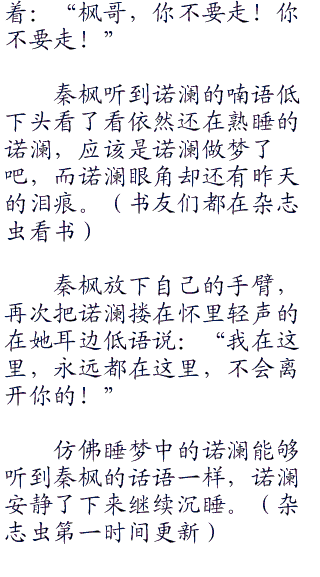 着：“枫哥，你不要走！你
不要走！”
秦枫听到诺澜的喃语低
下头看了看依然还在熟睡的
诺澜，应该是诺澜做梦了
吧，而诺澜眼角却还有昨天
的泪痕。（书友们都在杂志
虫看书）
秦枫放下自己的手臂，
再次把诺澜搂在怀里轻声的
在她耳边低语说：“我在这
里，永远都在这里，不会离
开你的！”
仿佛睡梦中的诺澜能够
听到秦枫的话语一样，诺澜
安静了下来继续沉睡。（杂
志虫第一时间更新）